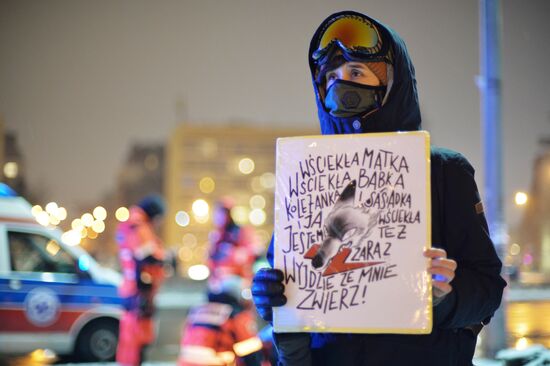 WŚCIEKŁA MATKA
WŚCIEKŁA BABKA
KOLEŻANKA I SĄSIADKA
I JA WŚCIEKŁA
JESTEM TEŻ
ZARAZ
WYJDZIE ZE MNIE
ZWIERZ!